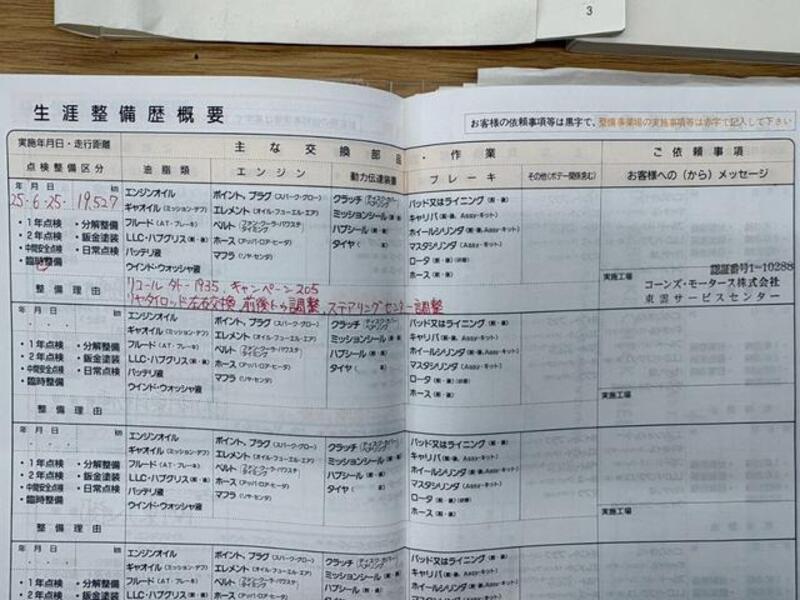 3
生涯整備歴概要
お客様の依頼事項等は黒字で、整備事業場の実施事項等は赤字で記入して下さい
実施年月日・走行距離
主な交換部品・作業
ご依頼事項
点検整備区分
油脂類
エンジン
動力伝達装置
ブレーキ
その他(ボデー関係含む)
お客様への(から)メッセージ
年 月 日 km
25・6・25・19,527
・1年点検 ・分解整備
・2年点検 ・鈑金塗装
・中間安全点検 ・日常点検
・臨時整備
エンジンオイル
ギャオイル(ミッション・デフ)
フルード(AT・ブレーキ)
LLC・ハブグリス(前・後)
バッテリ液
ウインド・ウオッシャ液
ポイント、プラグ(スパーク・グロー)
エレメント(オイル・フューエル・エア)
ベルト(ファン・クーラ・パワステ タイミング)
ホース(アッパ・ロア・ヒータ)
マフラ(リヤ・センタ)
クラッチ(ディスク・カバー ベアリング)
ミッションシール(前・後)
ハブシール(前・後)
タイヤ(前・後)
パッド又はライニング(前・後)
キャリパ(前・後、Assy・キット)
ホイールシリンダ(前・後、Assy・キット)
マスタシリンダ(Assy・キット)
ロータ(前・後)(研磨)
ホース(前・後)
実施工場
認証番号1-10288
コーンズ・モータース株式会社
東雲サービスセンター
整備理由
リコール 外-1935、キャンペーン205
リヤタイロッド左右交換 前後トゥ調整、ステアリングセンター調整
年 月 日 km
・1年点検 ・分解整備
・2年点検 ・鈑金塗装
・中間安全点検 ・日常点検
・臨時整備
エンジンオイル
ギャオイル(ミッション・デフ)
フルード(AT・ブレーキ)
LLC・ハブグリス(前・後)
バッテリ液
ウインド・ウオッシャ液
ポイント、プラグ(スパーク・グロー)
エレメント(オイル・フューエル・エア)
ベルト(ファン・クーラ・パワステ タイミング)
ホース(アッパ・ロア・ヒータ)
マフラ(リヤ・センタ)
クラッチ(ディスク・カバー ベアリング)
ミッションシール(前・後)
ハブシール(前・後)
タイヤ(前・後)
パッド又はライニング(前・後)
キャリパ(前・後、Assy・キット)
ホイールシリンダ(前・後、Assy・キット)
マスタシリンダ(Assy・キット)
ロータ(前・後)(研磨)
ホース(前・後)
実施工場
整備理由
年 月 日 km
・1年点検 ・分解整備
・2年点検 ・鈑金塗装
・中間安全点検 ・日常点検
・臨時整備
エンジンオイル
ギャオイル(ミッション・デフ)
フルード(AT・ブレーキ)
LLC・ハブグリス(前・後)
バッテリ液
ウインド・ウオッシャ液
ポイント、プラグ(スパーク・グロー)
エレメント(オイル・フューエル・エア)
ベルト(ファン・クーラ・パワステ タイミング)
ホース(アッパ・ロア・ヒータ)
マフラ(リヤ・センタ)
クラッチ(ディスク・カバー ベアリング)
ミッションシール(前・後)
ハブシール(前・後)
タイヤ(前・後)
パッド又はライニング(前・後)
キャリパ(前・後、Assy・キット)
ホイールシリンダ(前・後、Assy・キット)
マスタシリンダ(Assy・キット)
ロータ(前・後)(研磨)
ホース(前・後)
実施工場
整備理由
年 月 日 km
・1年点検 ・分解整備
・2年点検 ・鈑金塗装
エンジンオイル
ギャオイル(ミッション・デフ)
フルード(AT・ブレーキ)
LLC・ハブグリス(前・後)
ポイント、プラグ(スパーク・グロー)
エレメント(オイル・フューエル・エア)
ベルト(ファン・クーラ・パワステ タイミング)
ホース(アッパ・ロア・ヒータ)
クラッチ(ディスク・カバー ベアリング)
ミッションシール(前・後)
ハブシール(前・後)
タイヤ(前・後)
パッド又はライニング(前・後)
キャリパ(前・後、Assy・キット)
ホイールシリンダ(前・後、Assy・キット)
マスタシリンダ(Assy・キット)